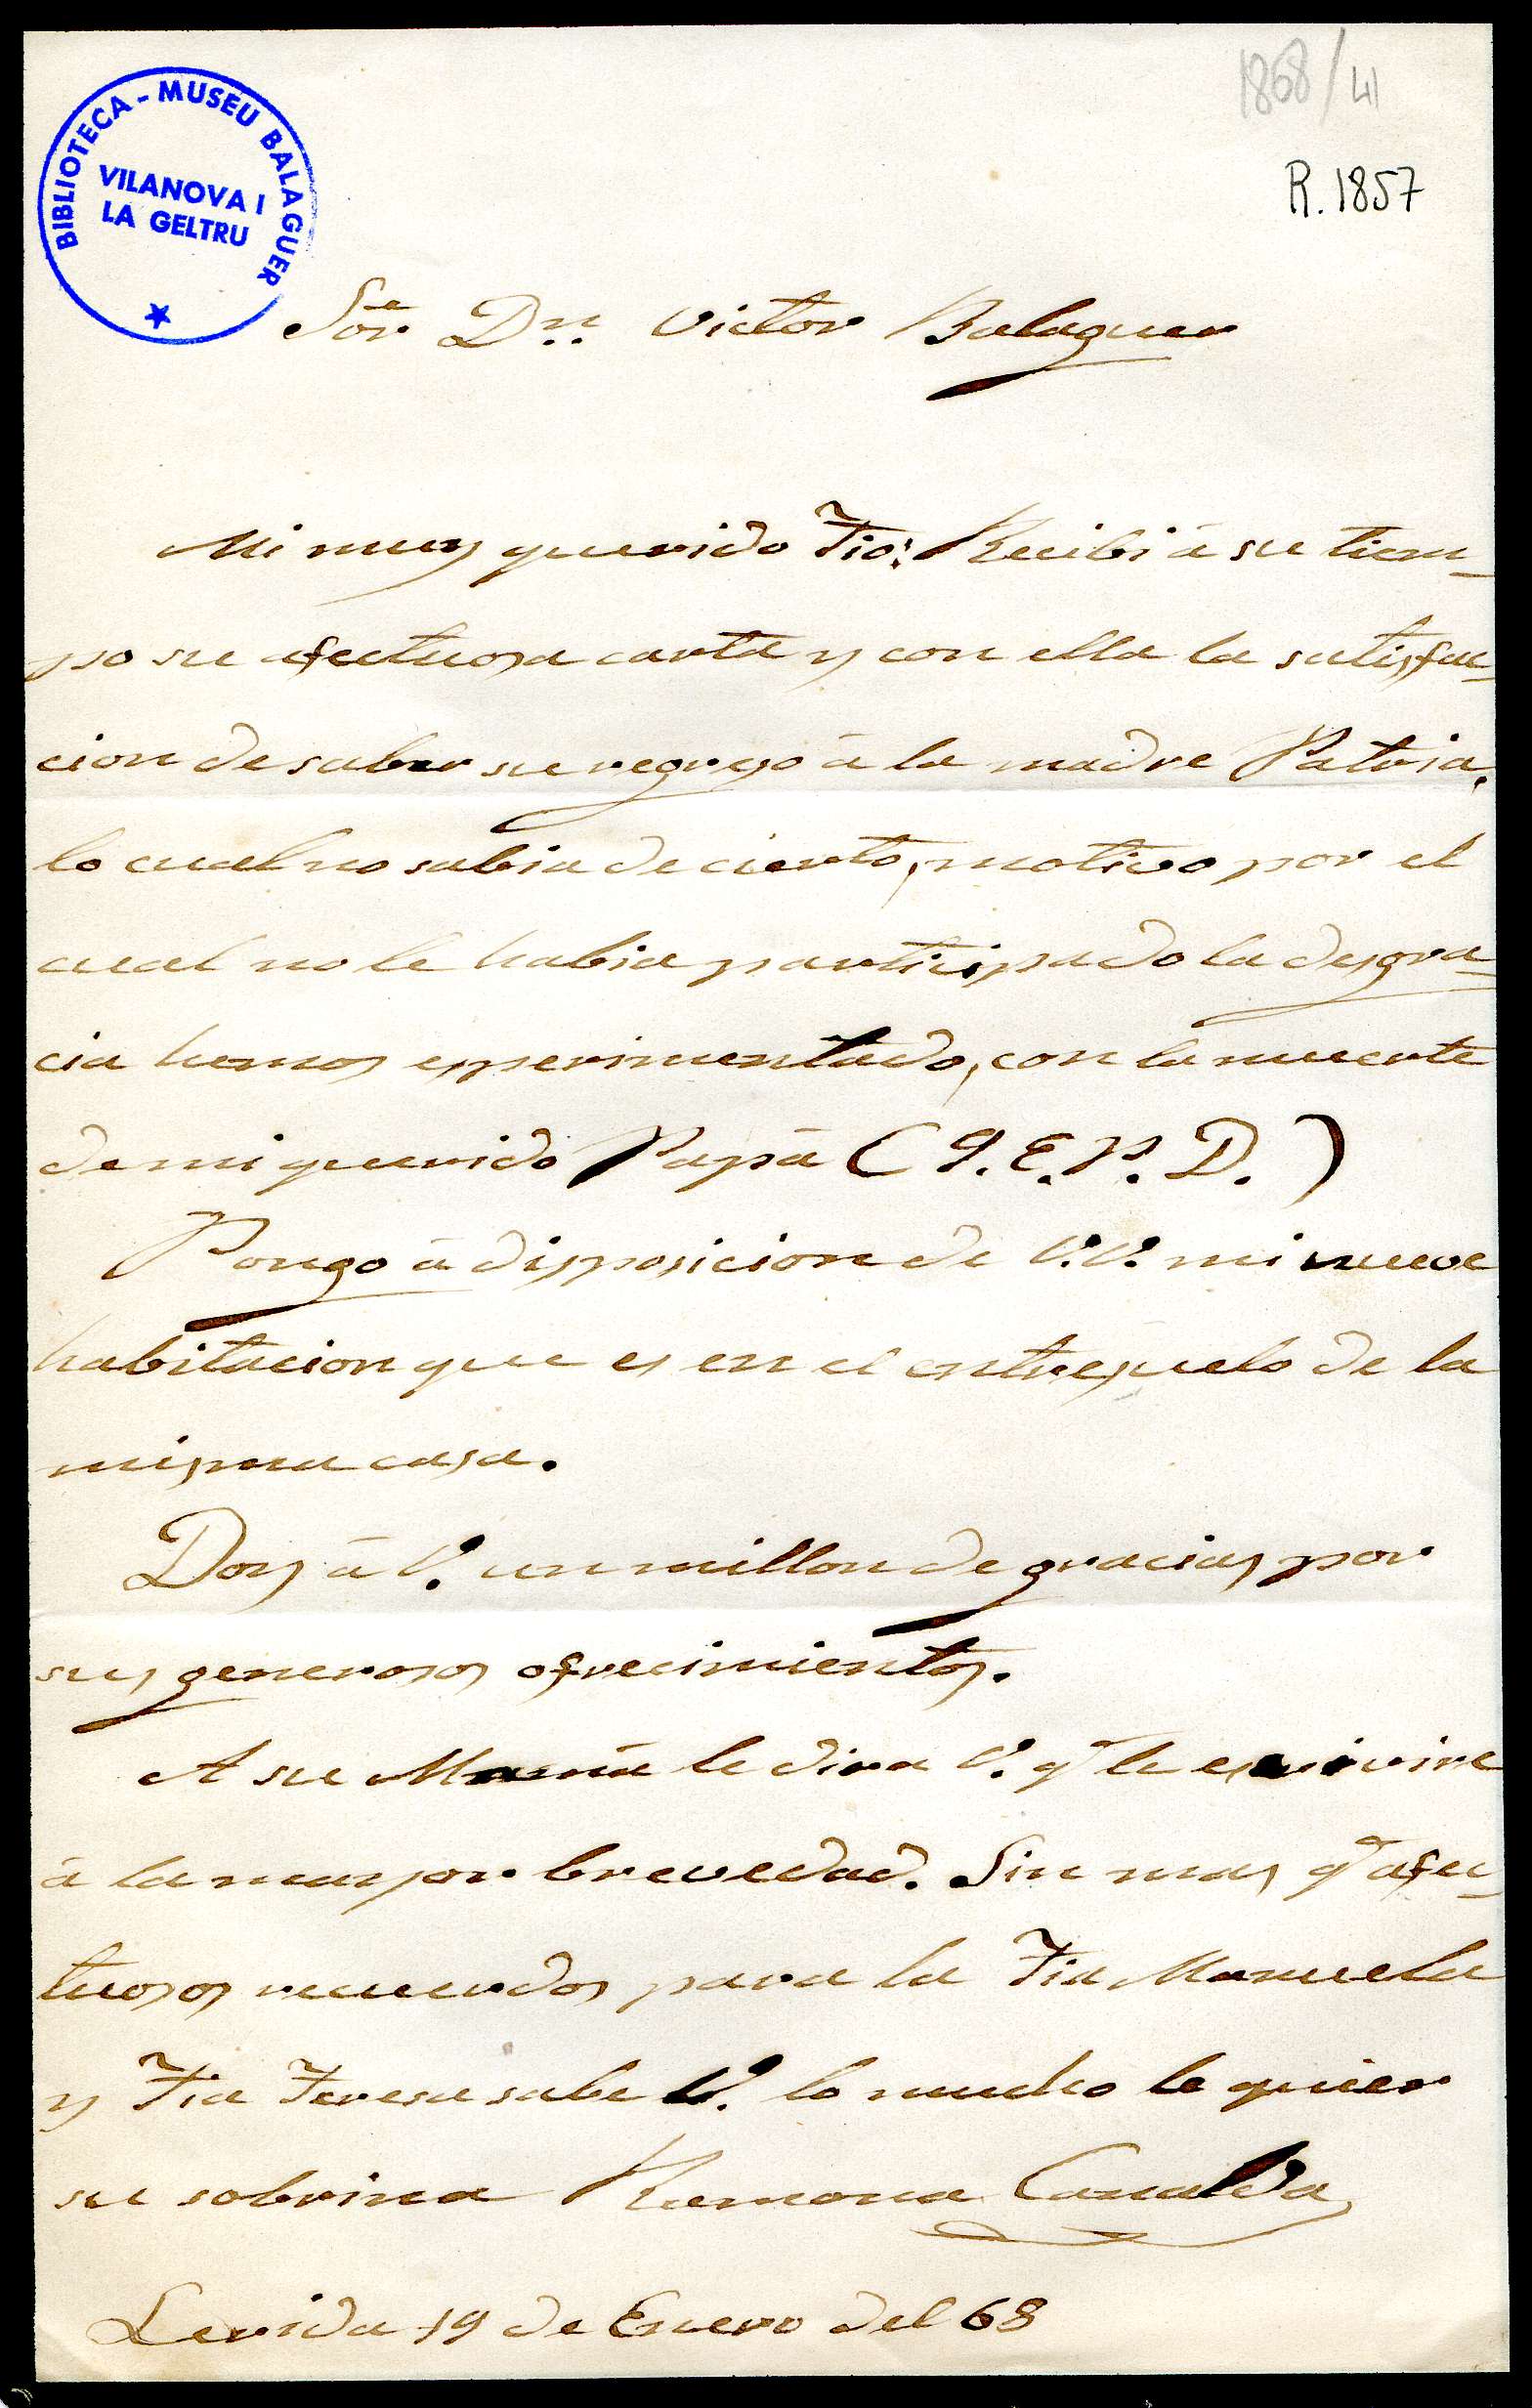 1868/41
R. 1857
BIBLIOTECA - MUSEU BALAGUER
VILANOVA I
LA GELTRU
Sor Dn. Victor Balaguer
Mi muy querido Tio: Recibi á su tiem-
po su afectuosa carta y con ella la satisfac-
cion de saber su regreso á la madre Patria,
lo cual no sabia de cierto, motivo por el
cual no le habia participado la desgra-
cia hemos esperimentado, con la muerte
de mi querido Papá (Q.E.P.D.)
Pongo á disposicion de V.V. mi nueve
habitacion que es en el entresuelo de la
misma casa.
Doy á V. un millon de gracias por
sus generosos ofrecimientos.
A su Mamá le dira V. qe le escrivire
á la mayor brevedad. Sin mas qe afec-
tuosos recuerdos para la Tia Manuela
y Tia Teresa sabe V. lo mucho le quier
su sobrina Ramona Canalda
Lerida 19 de Enero del 68